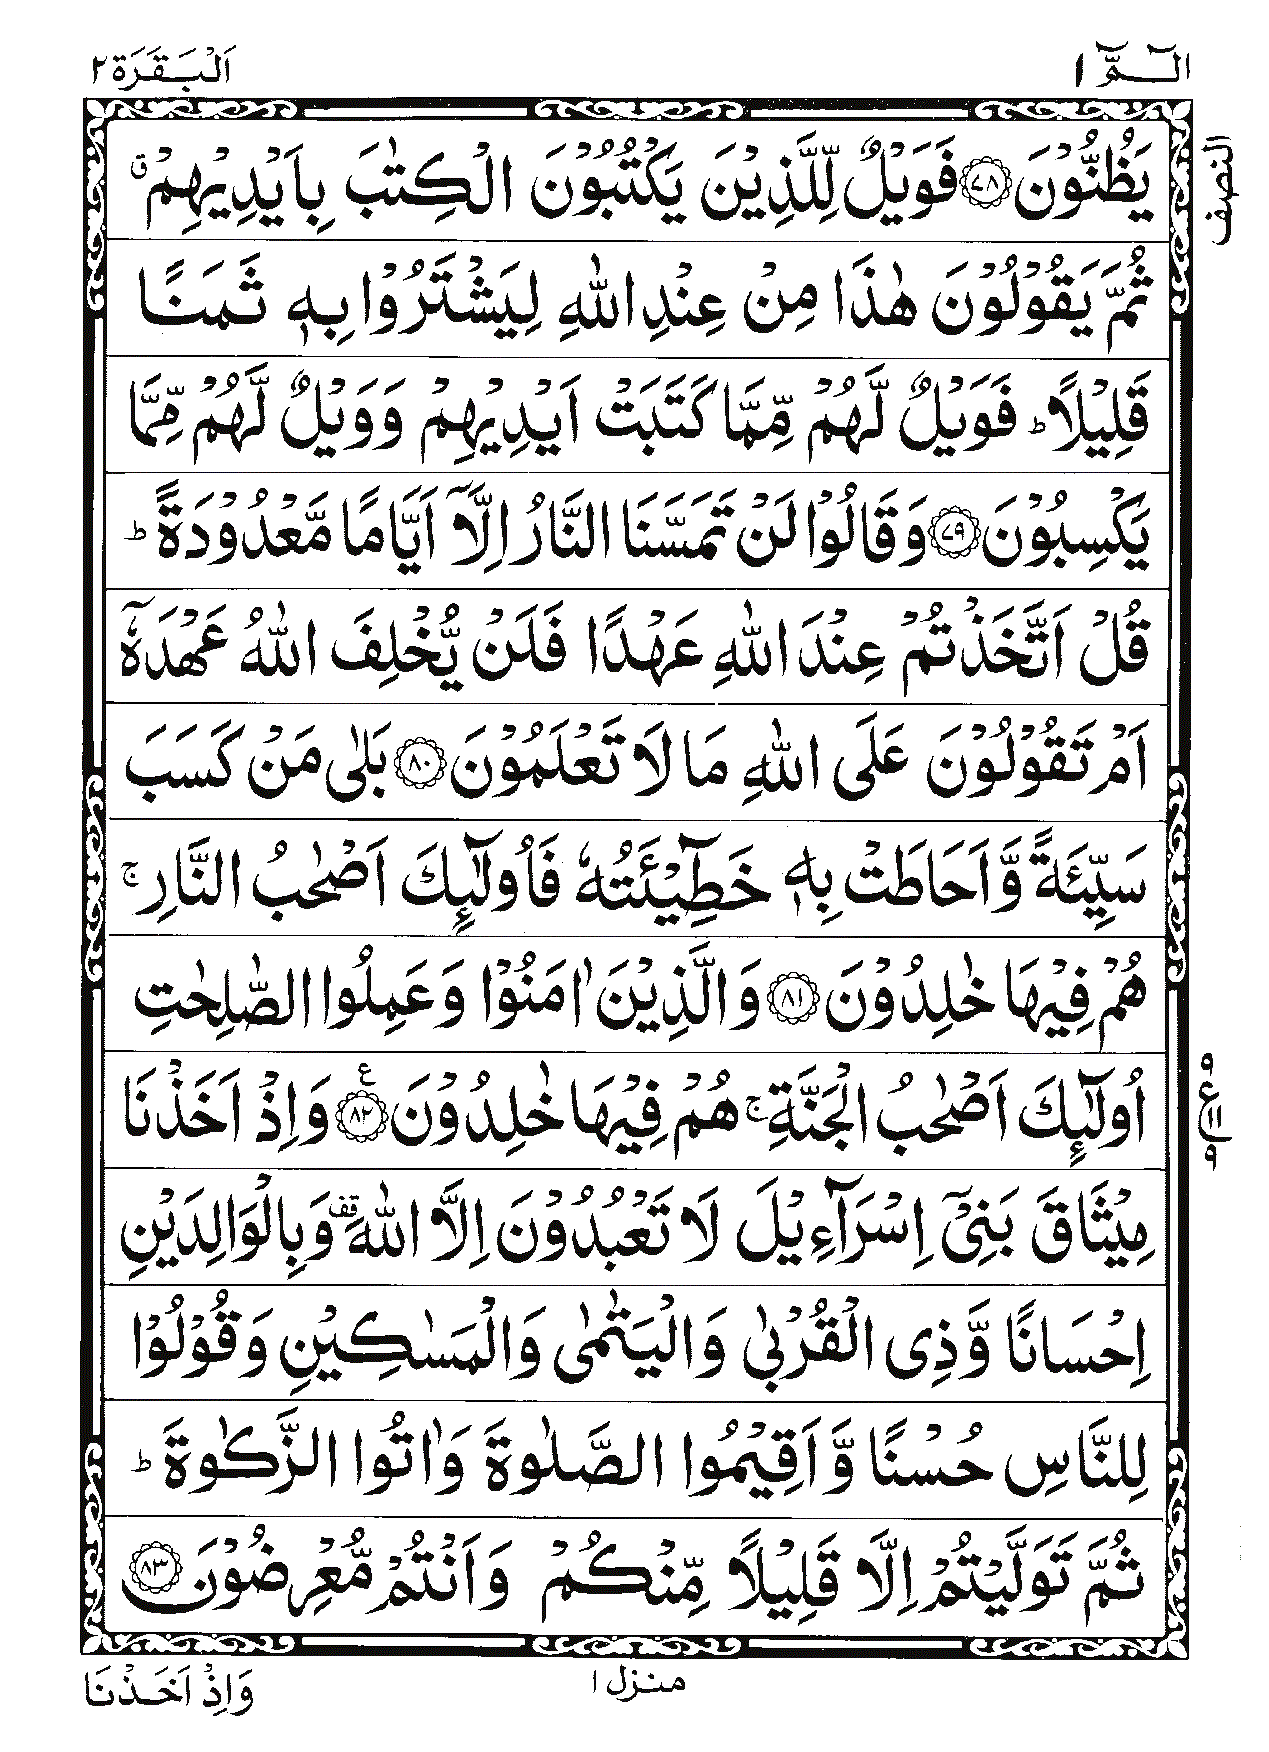 الٓـمّٓ ١
اَلْبَقَرَة ٢
النصف
يَظُنُّوْنَ ﴿٧٨﴾ فَوَيْلٌ لِّلَّذِيْنَ يَكْتُبُوْنَ الْكِتٰبَ بِاَيْدِيْهِمْ ۗ
ثُمَّ يَقُوْلُوْنَ هٰذَا مِنْ عِنْدِ اللّٰهِ لِيَشْتَرُوْا بِهٖ ثَمَنًا
قَلِيْلًا ؕ فَوَيْلٌ لَّهُمْ مِّمَّا كَتَبَتْ اَيْدِيْهِمْ وَوَيْلٌ لَّهُمْ مِّمَّا
يَكْسِبُوْنَ ﴿٧٩﴾ وَقَالُوْا لَنْ تَمَسَّنَا النَّارُ اِلَّآ اَيَّامًا مَّعْدُوْدَةً ؕ
قُلْ اَتَّخَذْتُمْ عِنْدَ اللّٰهِ عَهْدًا فَلَنْ يُّخْلِفَ اللّٰهُ عَهْدَهٗۤ
اَمْ تَقُوْلُوْنَ عَلَى اللّٰهِ مَا لَا تَعْلَمُوْنَ ﴿٨٠﴾ بَلٰى مَنْ كَسَبَ
سَيِّئَةً وَّاَحَاطَتْ بِهٖ خَطِيْٓـئَتُهٗ فَاُولٰٓئِكَ اَصْحٰبُ النَّارِ ۚ
هُمْ فِيْهَا خٰلِدُوْنَ ﴿٨١﴾ وَالَّذِيْنَ اٰمَنُوْا وَعَمِلُوا الصّٰلِحٰتِ
اُولٰٓئِكَ اَصْحٰبُ الْجَنَّةِ ۚ هُمْ فِيْهَا خٰلِدُوْنَ ﴿٨٢﴾ ع وَاِذْ اَخَذْنَا
٩ ع ١١ ٩
مِيْثَاقَ بَنِيْٓ اِسْرَآءِيْلَ لَا تَعْبُدُوْنَ اِلَّا اللّٰهَ قف وَبِالْوَالِدَيْنِ
اِحْسَانًا وَّذِى الْقُرْبٰى وَالْيَتٰمٰى وَالْمَسٰكِيْنِ وَقُوْلُوْا
لِلنَّاسِ حُسْنًا وَّاَقِيْمُوا الصَّلٰوةَ وَاٰتُوا الزَّكٰوةَ ؕ
ثُمَّ تَوَلَّيْتُمْ اِلَّا قَلِيْلًا مِّنْكُمْ وَاَنْتُمْ مُّعْرِضُوْنَ ﴿٨٣﴾
منزل ١
وَاِذْ اَخَذْنَا